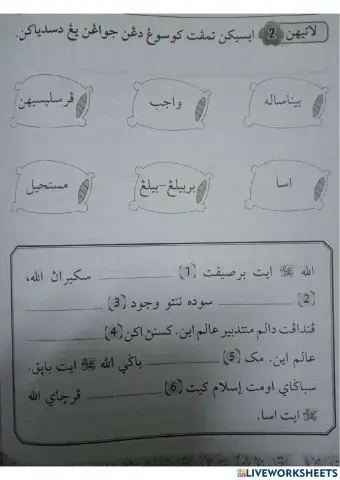 لاتيهن 2 ايسيكن تمڤت كوسوڠ دڠن جواڤن يڠ دسدياكن.
بيناساله
واجب
ڤرسليسيهن
اسا
بربيلڠ-بيلڠ
مستحيل
الله ﷻ ايت برصيفت (1) ________ سکيراڽ الله،
(2) ________ سوده تنتو وجود (3) ________
ڤنداڤت دالم منتدبير عالم اين. کسنڽ اکن (4) ________
عالم اين. مک (5) ________ باڬي الله ﷻ ايت باڽق.
سباڬاي اومت إسلام کيت (6) ________ ڤرچاي الله
ﷻ ايت اسا.
LIVEWORKSHEETS